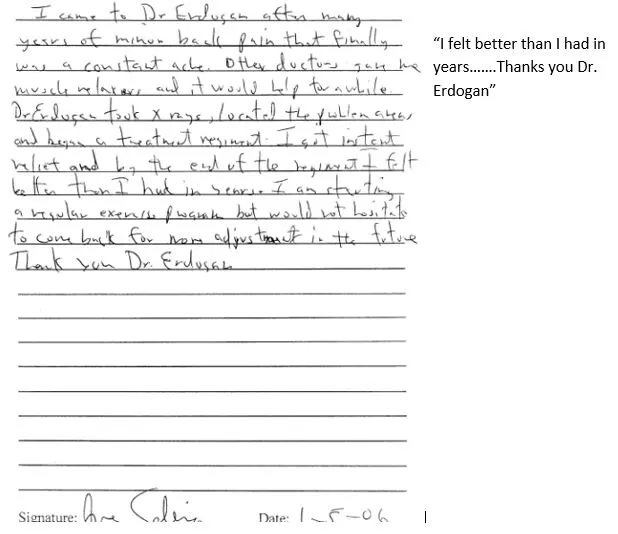 I came to Dr Erdogan after many
years of minor back pain that finally
was a constant ache. Other doctors gave me
muscle relaxers and it would help for awhile
Dr Erdogan took x rays, located the problem areas
and began a treatment regiment. I got instant
relief and by the end of the regiment I felt
better than I had in years. I am starting
a regular exercise program but would not hesitate
to come back for more adjustment in the future
Thank you Dr. Erdogan
Signature:
Date: 1-5-06
“I felt better than I had in
years.......Thanks you Dr.
Erdogan”